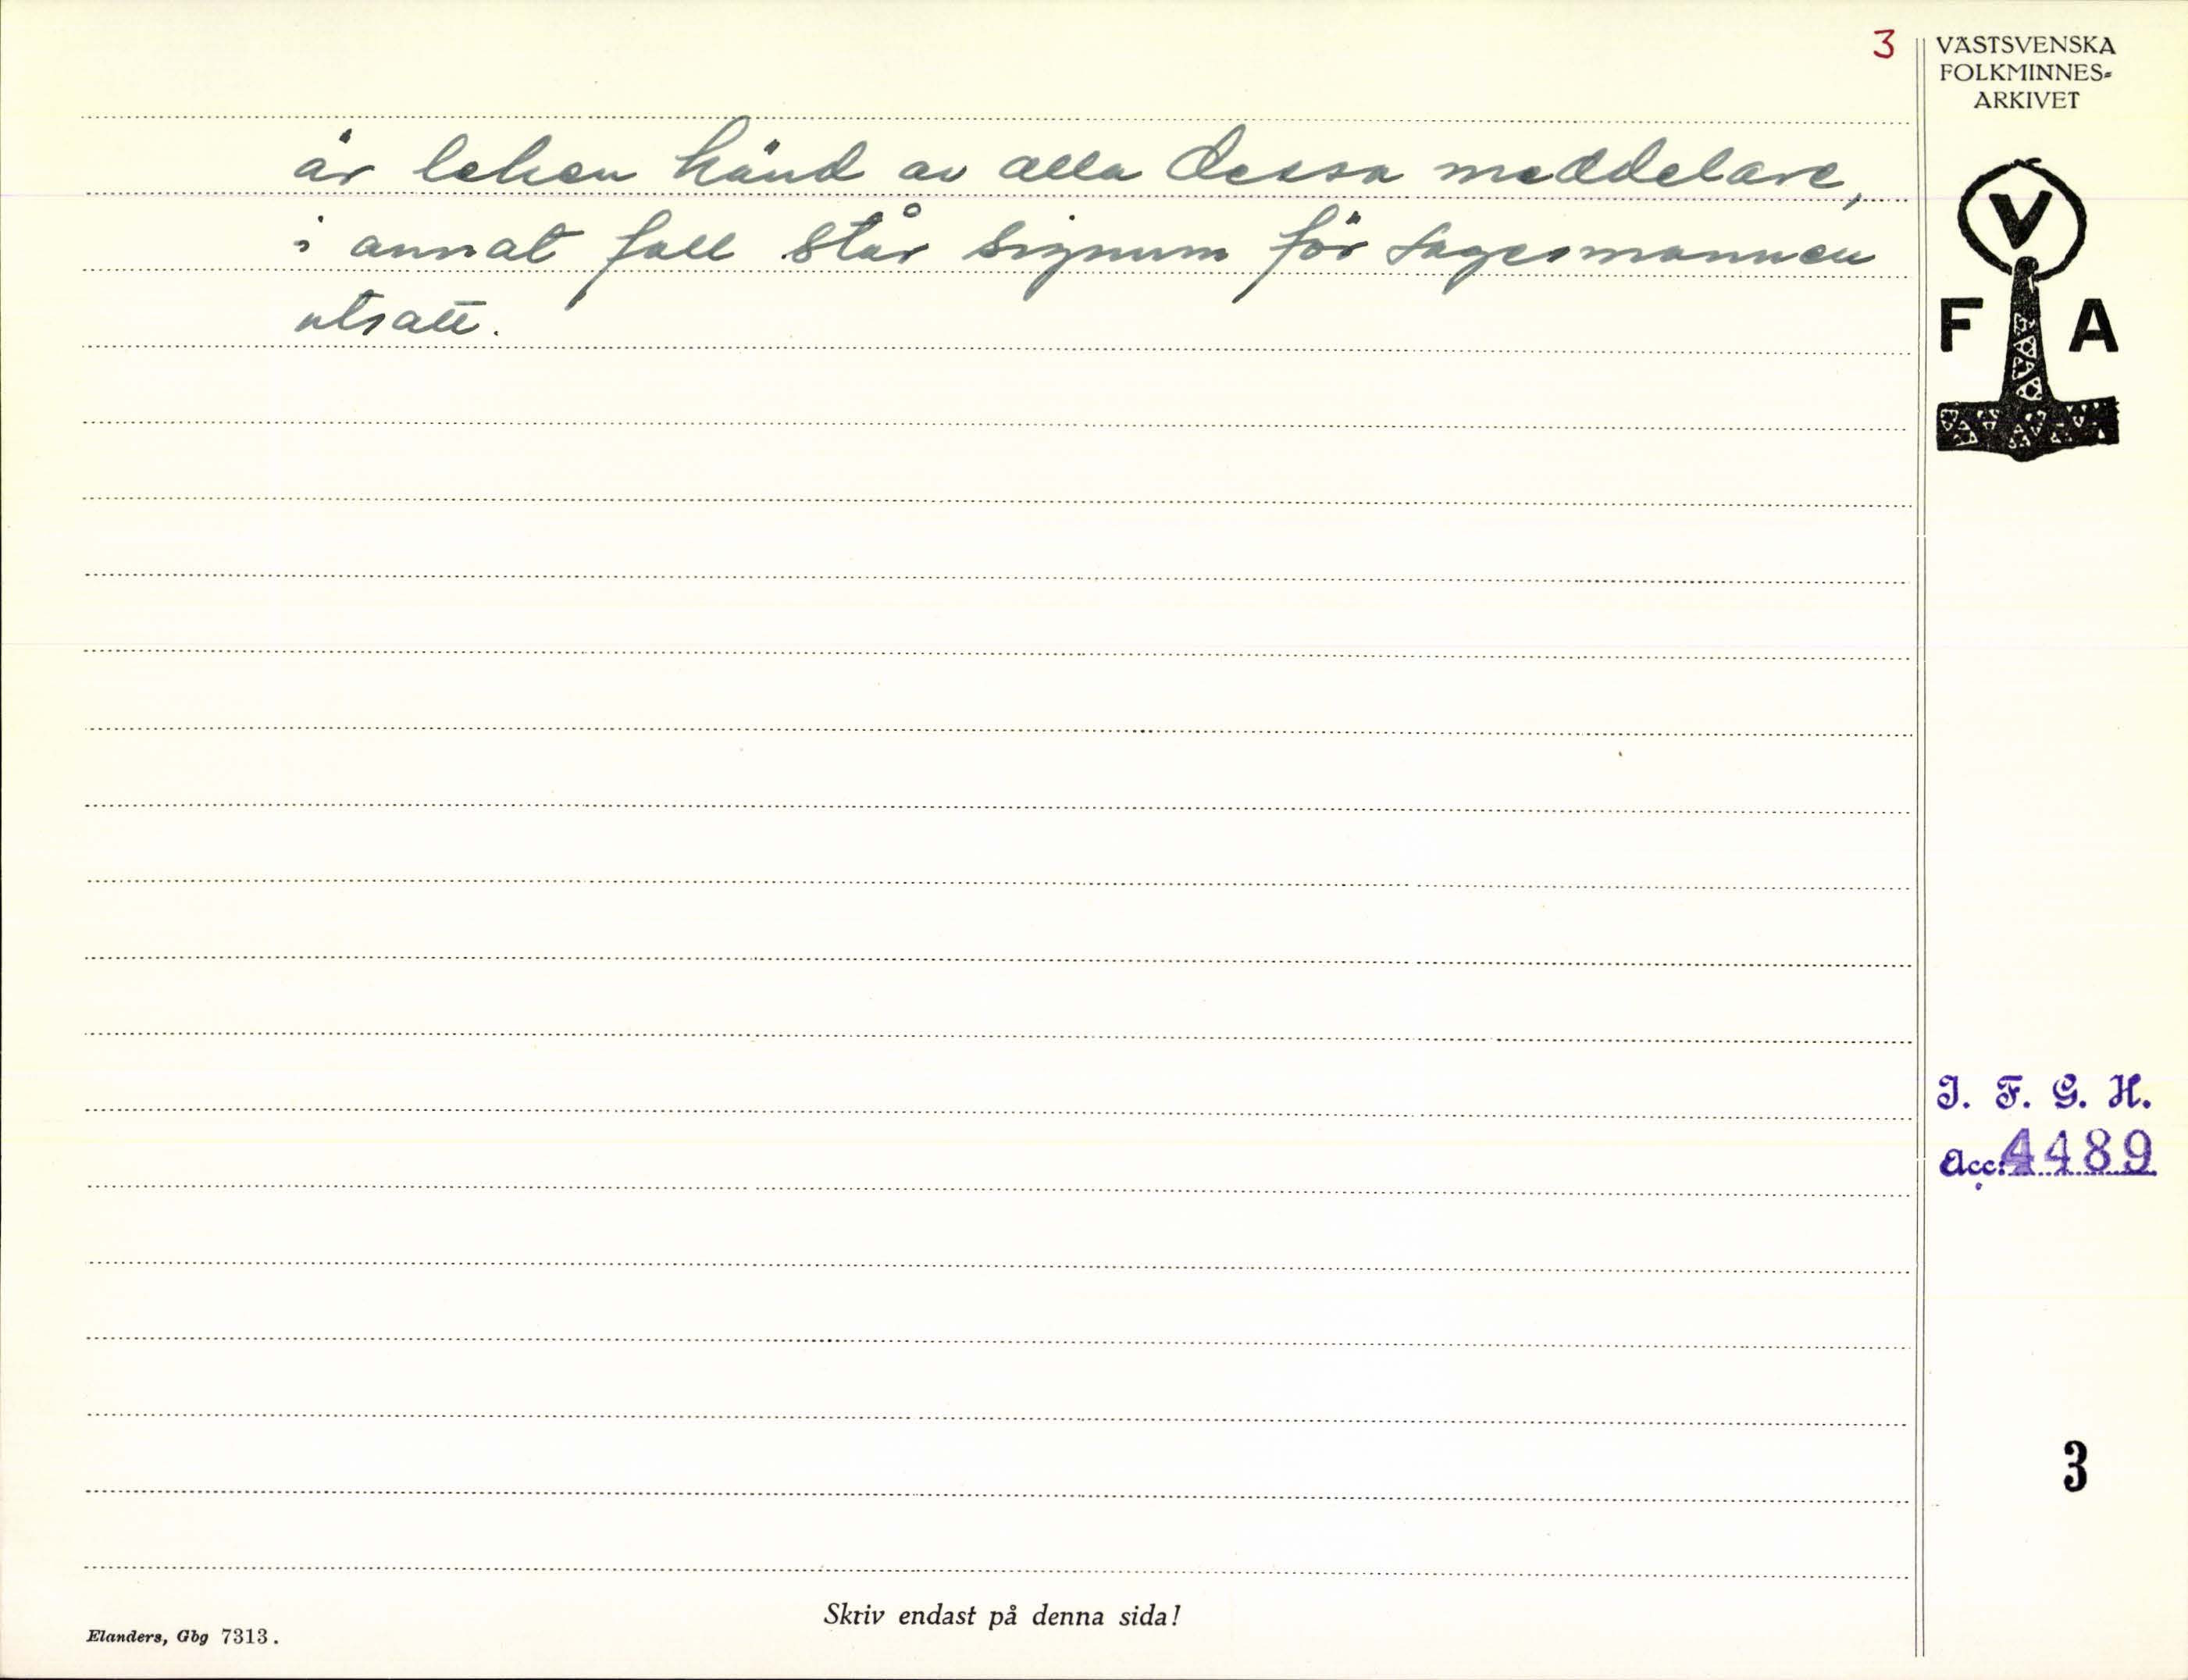 3
VÄSTSVENSKA
FOLKMINNES=
ARKIVET
är leken känd av alla dessa meddelare,
i annat fall står signum för sagesmannen
utsatt.
V
F A
I. F. G. H.
Acc: 4489
3
Skriv endast på denna sida!
Elanders, Gbg 7313.